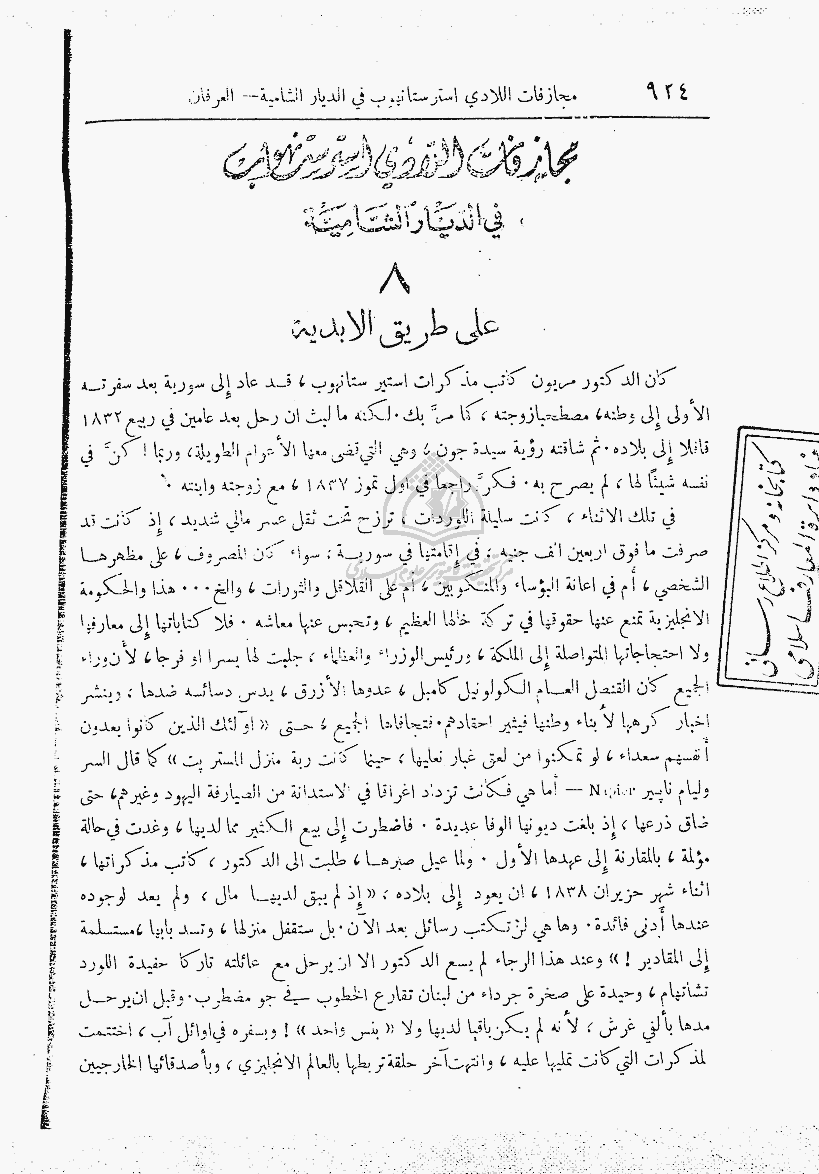 ٩٢٤
مجازفات اللادي استر ستانهوب في الديار الشامية — العرفان
مجازفات اللادي استر ستانهوب
في الديار الشامية
٨
على طريق الابدية
كان الدكتور مريون كاتب مذكرات استير ستانهوب ، قد عاد إلى سورية بعد سفرته
الأولى إلى وطنه، مصطحبا زوجته ، كما مرَّ بك . لكنه ما لبث ان رحل بعد عامين في ربيع ١٨٣٢
قافلا إلى بلاده . ثم شاقته رؤية سيدة جون ، وهي التي قضى معها الأعوام الطويلة، وربما أكنَّ في
نفسه شيئًا لها ، لم يصرح به . فكرَّ راجعا في اول تموز ١٨٣٧ ، مع زوجته وابنته .
في تلك الاثناء ، كانت سليلة اللوردات ، ترزح تحت ثقل عسر مالي شديد ، إذ كانت قد
صرفت ما فوق اربعين الف جنيه ، في إقامتها في سورية ، سواء كان المصروف ، على مظهرها
الشخصي ، أم في اعانة البؤساء والمنكوبين ، أم على القلاقل والثورات ، والخ . . . هذا والحكومة
الانجليزية تمنع عنها حقوقها في تركة خالها العظيم ، وتحبس عنها معاشه . فلا كتاباتها إلى معارفها
ولا احتجاجاتها المتواصلة إلى الملكة ، ورئيس الوزراء والعظماء ، جلبت لها يسرا او فرجا ، لأن وراء
الجميع كان القنصل العام الكولونيل كامبل ، عدوها الأزرق ، يدس دسائسه ضدها ، وينشر
اخبار كرهها لأبناء وطنها فيثير احقادهم . فتجافاها الجميع ، حتى « اولئك الذين كانوا يعدون
أنفسهم سعداء ، لو تمكنوا من لعق غبار نعليها ، حينما كانت ربة منزل المستر پت » كما قال السر
وليام ناپير Napier — أما هي فكانت تزداد اغراقا في الاستدانة من الصيارفة اليهود وغيرهم، حتى
ضاق ذرعها ، إذ بلغت ديونها الوفا عديدة . فاضطرت إلى بيع الكثير مما لديها ، وغدت في حالة
مؤلمة ، بالمقارنة إلى عهدها الأول . ولما عيل صبرها ، طلبت الى الدكتور ، كاتب مذكراتها ،
اثناء شهر حزيران ١٨٣٨ ، ان يعود إلى بلاده ، « إذ لم يبق لديها مال ، ولم يعد لوجوده
عندها أدنى فائدة . وها هي لن تكتب رسائل بعد الآن . بل ستقفل منزلها ، وتسد بابها ، مستسلمة
إلى المقادير ! » وعند هذا الرجاء لم يسع الدكتور الا ان يرحل مع عائلته تاركا حفيدة اللورد
تشاتهام ، وحيدة على صخرة جرداء من لبنان تقارع الخطوب في جو مضطرب . وقبل ان يرحل
مدها بألفي غرش ، لأنه لم يكن باقيا لديها ولا « بنس واحد » ! وبسفره في اوائل آب ، اختتمت
المذكرات التي كانت تمليها عليه ، وانتهت آخر حلقة تربطها بالعالم الانجليزي ، وبأصدقائها الخارجيين
كتابخانه و مركز اطلاع رسانى